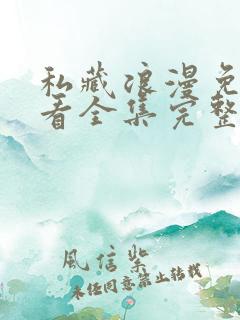 私藏浪漫免
看全集完整
風信紫
未经同意禁止转载